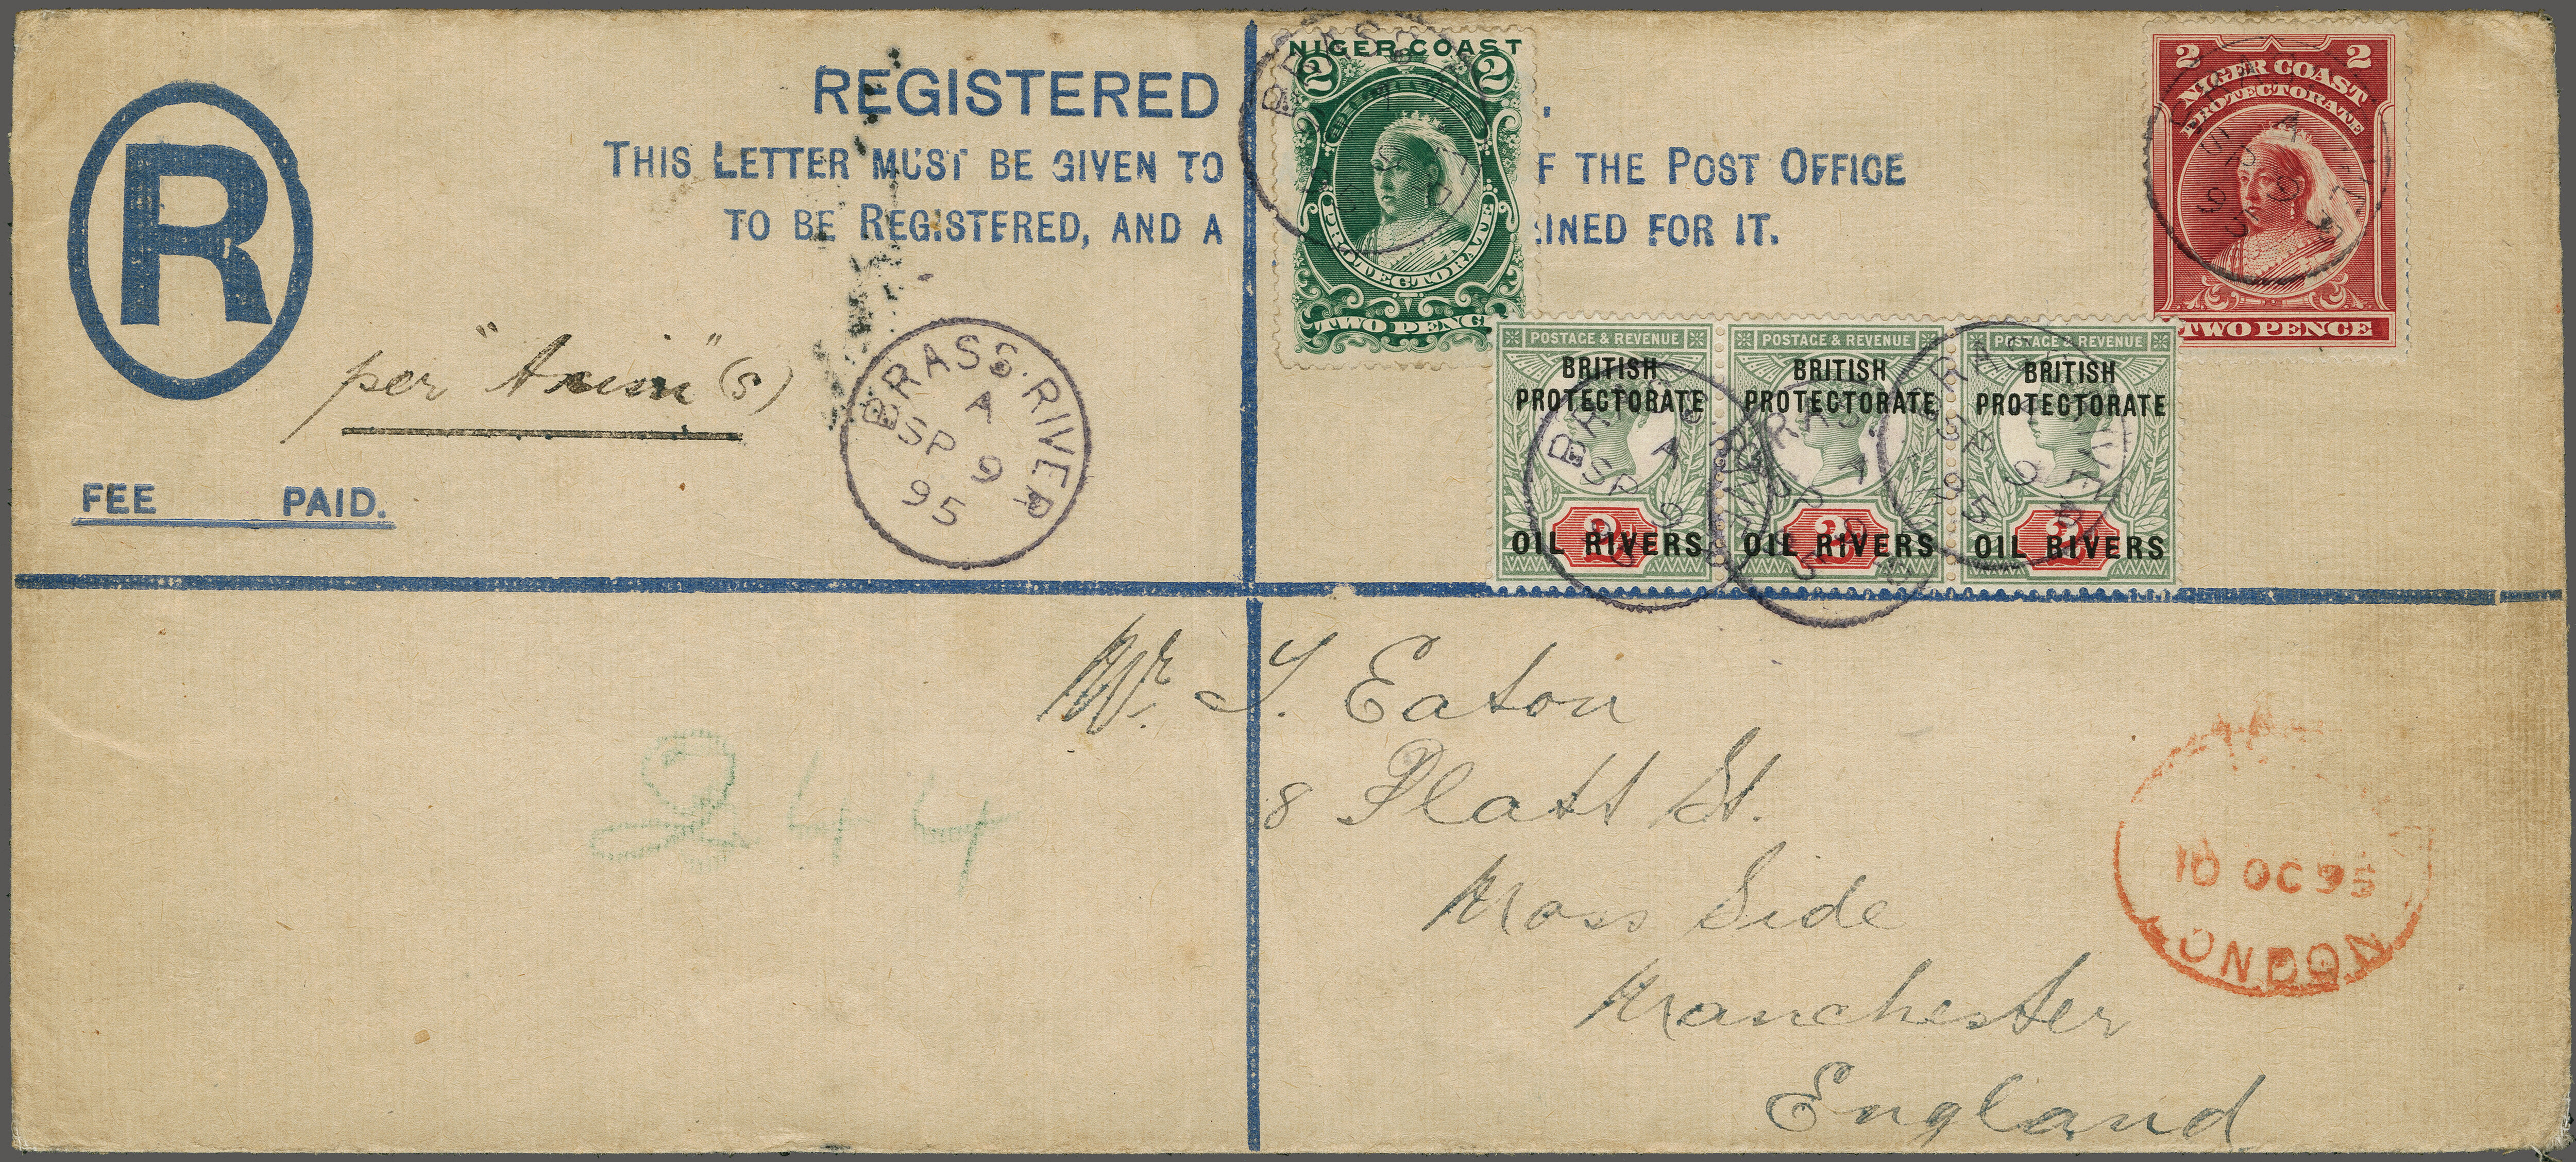 R
REGISTERED
THIS LETTER MUST BE GIVEN TO F THE POST OFFICE
TO BE REGISTERED, AND A INED FOR IT.
per "      " (s)
FEE PAID.
BRASS·RIVER
A
SP 9
95
NIGER COAST
2 2
PROTECTORATE
TWO PENC
2 2
NIGER COAST
PROTECTORATE
TWO PENCE
POSTAGE & REVENUE POSTAGE & REVENUE POSTAGE & REVENUE
BRITISH BRITISH BRITISH
PROTECTORATE PROTECTORATE PROTECTORATE
OIL RIVERS OIL RIVERS OIL RIVERS
Mr. T. Eaton
8 Platt St.
Moss Side
Manchester
England
244
10 OC 95
LONDON